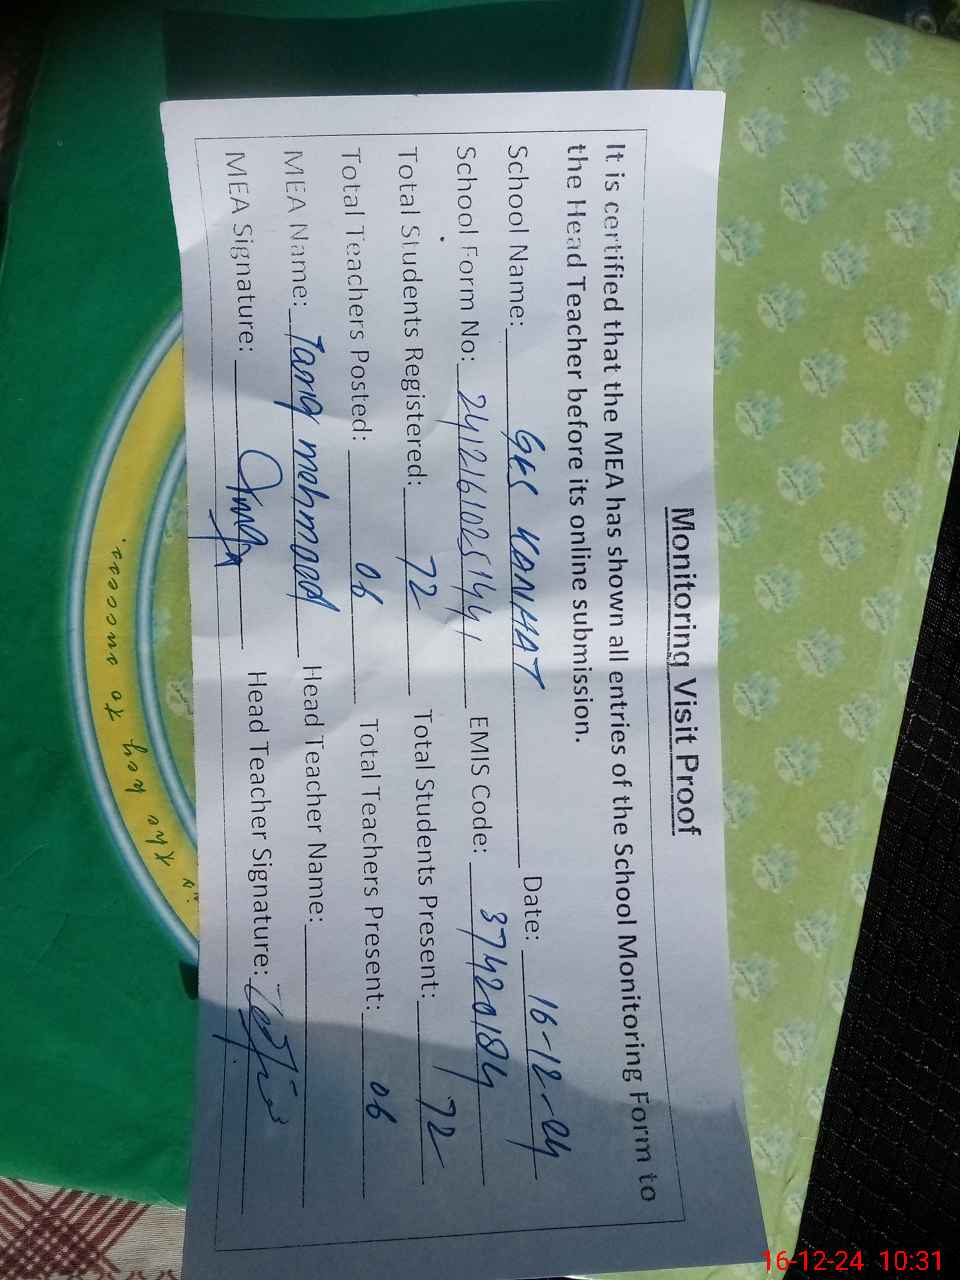 Monitoring Visit Proof
It is certified that the MEA has shown all entries of the School Monitoring Form to
the Head Teacher before its online submission.
School Name: GES KANHAT Date: 16-12-24
School Form No: 24121610251441 EMIS Code: 37420184
Total Students Registered: 72 Total Students Present: 72
Total Teachers Posted: 06 Total Teachers Present: 06
MEA Name: Tariq mehmood Head Teacher Name:
MEA Signature: Head Teacher Signature:
is the key to success.
16-12-24 10:31